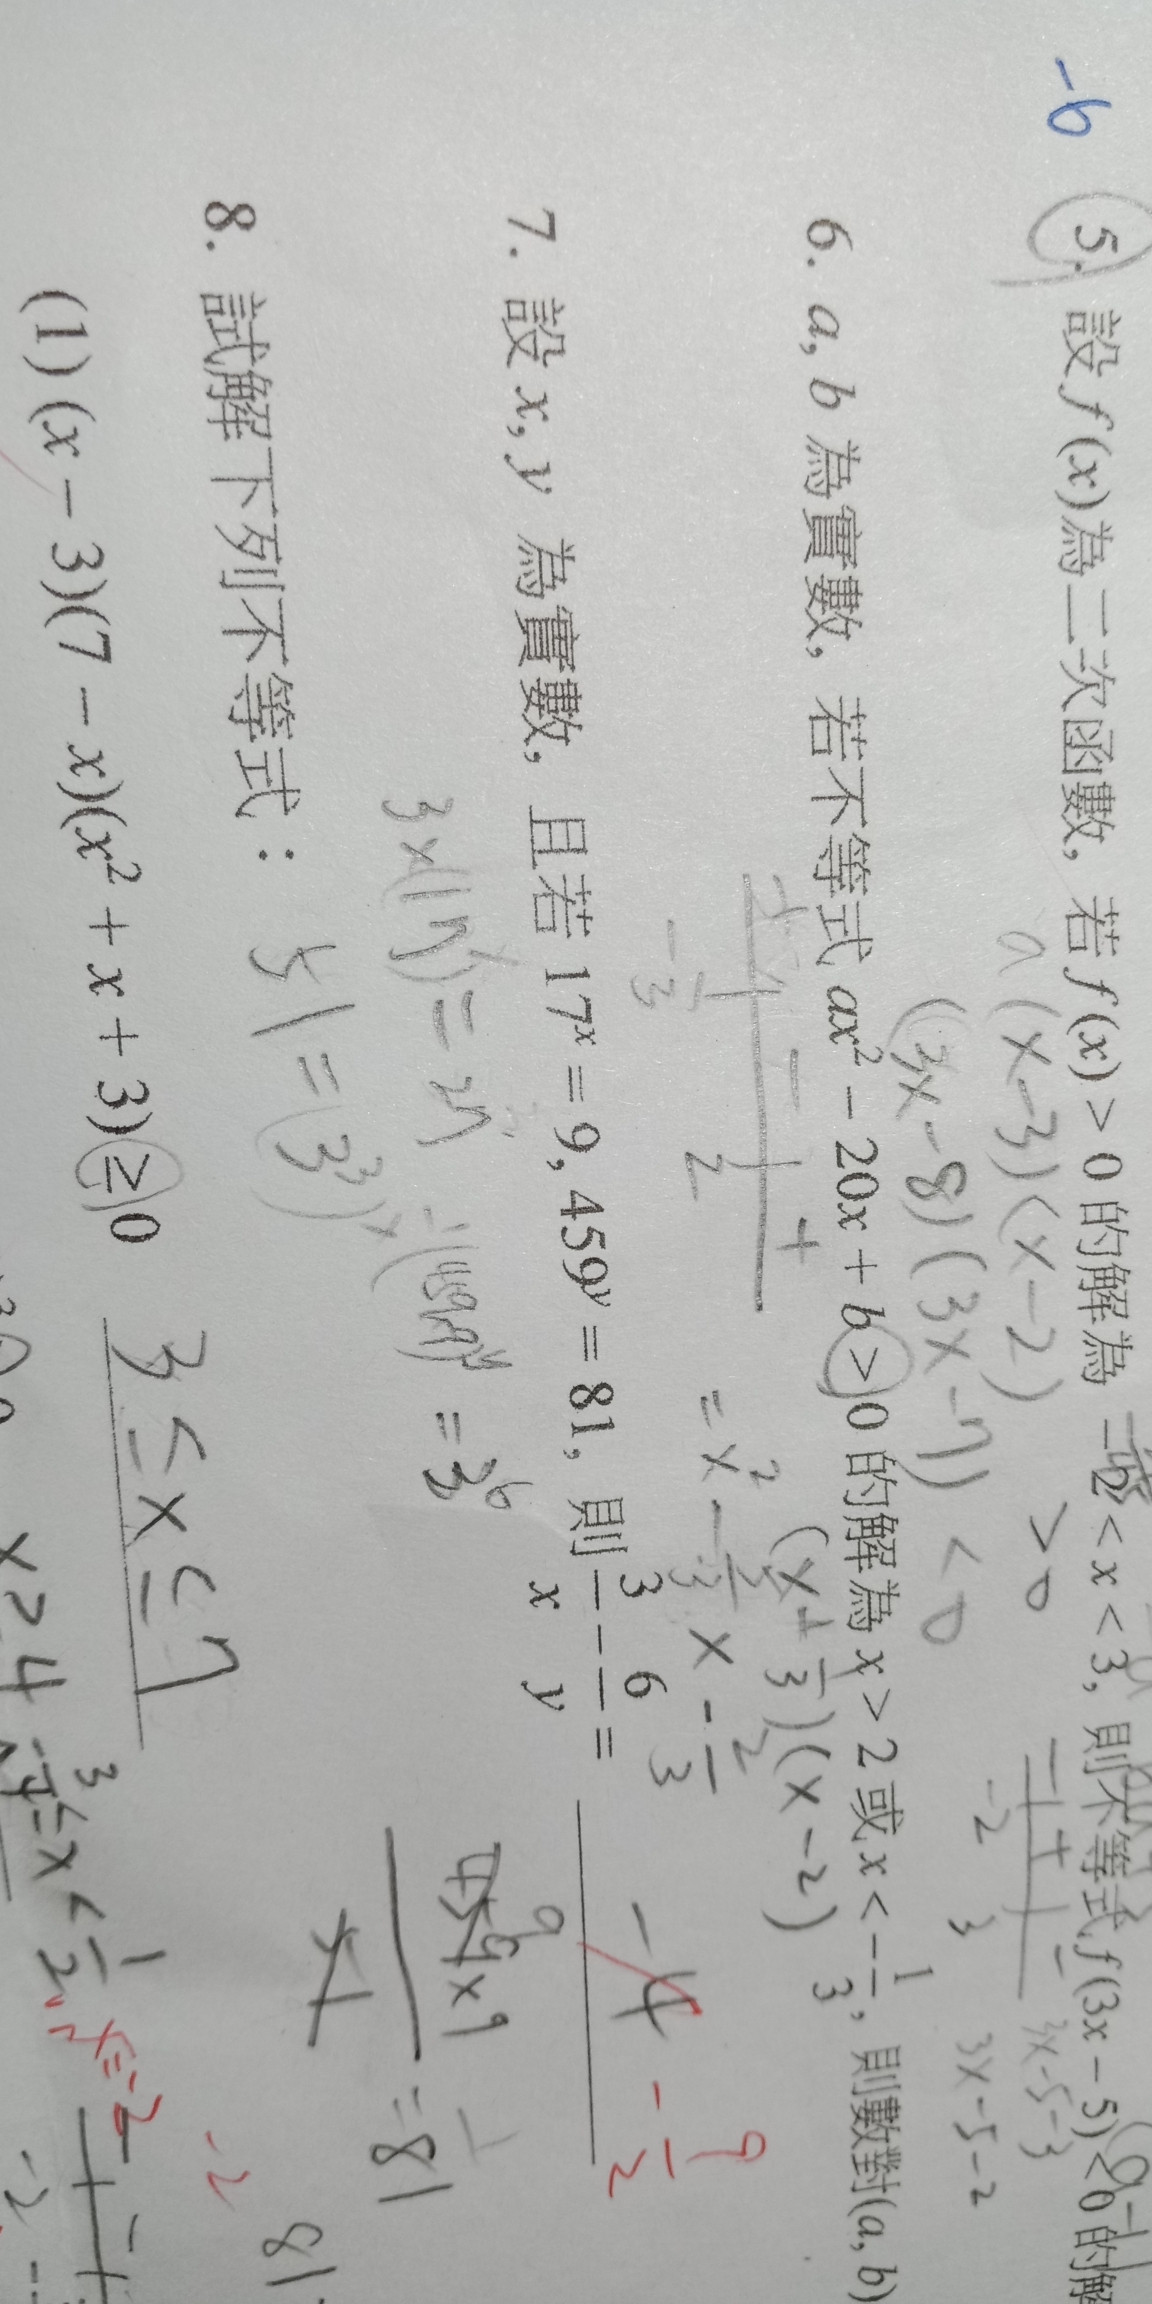 -6
5. 設 f(x)為二次函數，若 f(x) > 0 的解為 -2 < x < 3，則不等式 f(3x - 5) < 0 的解
a(x-3)(x-2) > 0
(3x-8)(3x-7) < 0
- + -
-2 3
3x-5-3
3x-5-2
6. a, b 為實數，若不等式 ax² - 20x + b > 0 的解為 x > 2 或 x < -1/3，則數對(a, b)
+ - +
-1/3 2
(x+1/3)(x-2)
= x² - 5/3 x - 2/3
7. 設 x, y 為實數，且若 17ˣ = 9, 459ʸ = 81，則 3/x - 6/y =
-4 -9/2
3×(17)ˣ = 27
= 3⁶
51 = (3³)ˣ
= 81
8. 試解下列不等式：
81
-2
(1) (x - 3)(7 - x)(x² + x + 3) ≥ 0
3 ≤ x ≤ 7
x ≥ 4
≤ x < 1/2, x = -2
-2